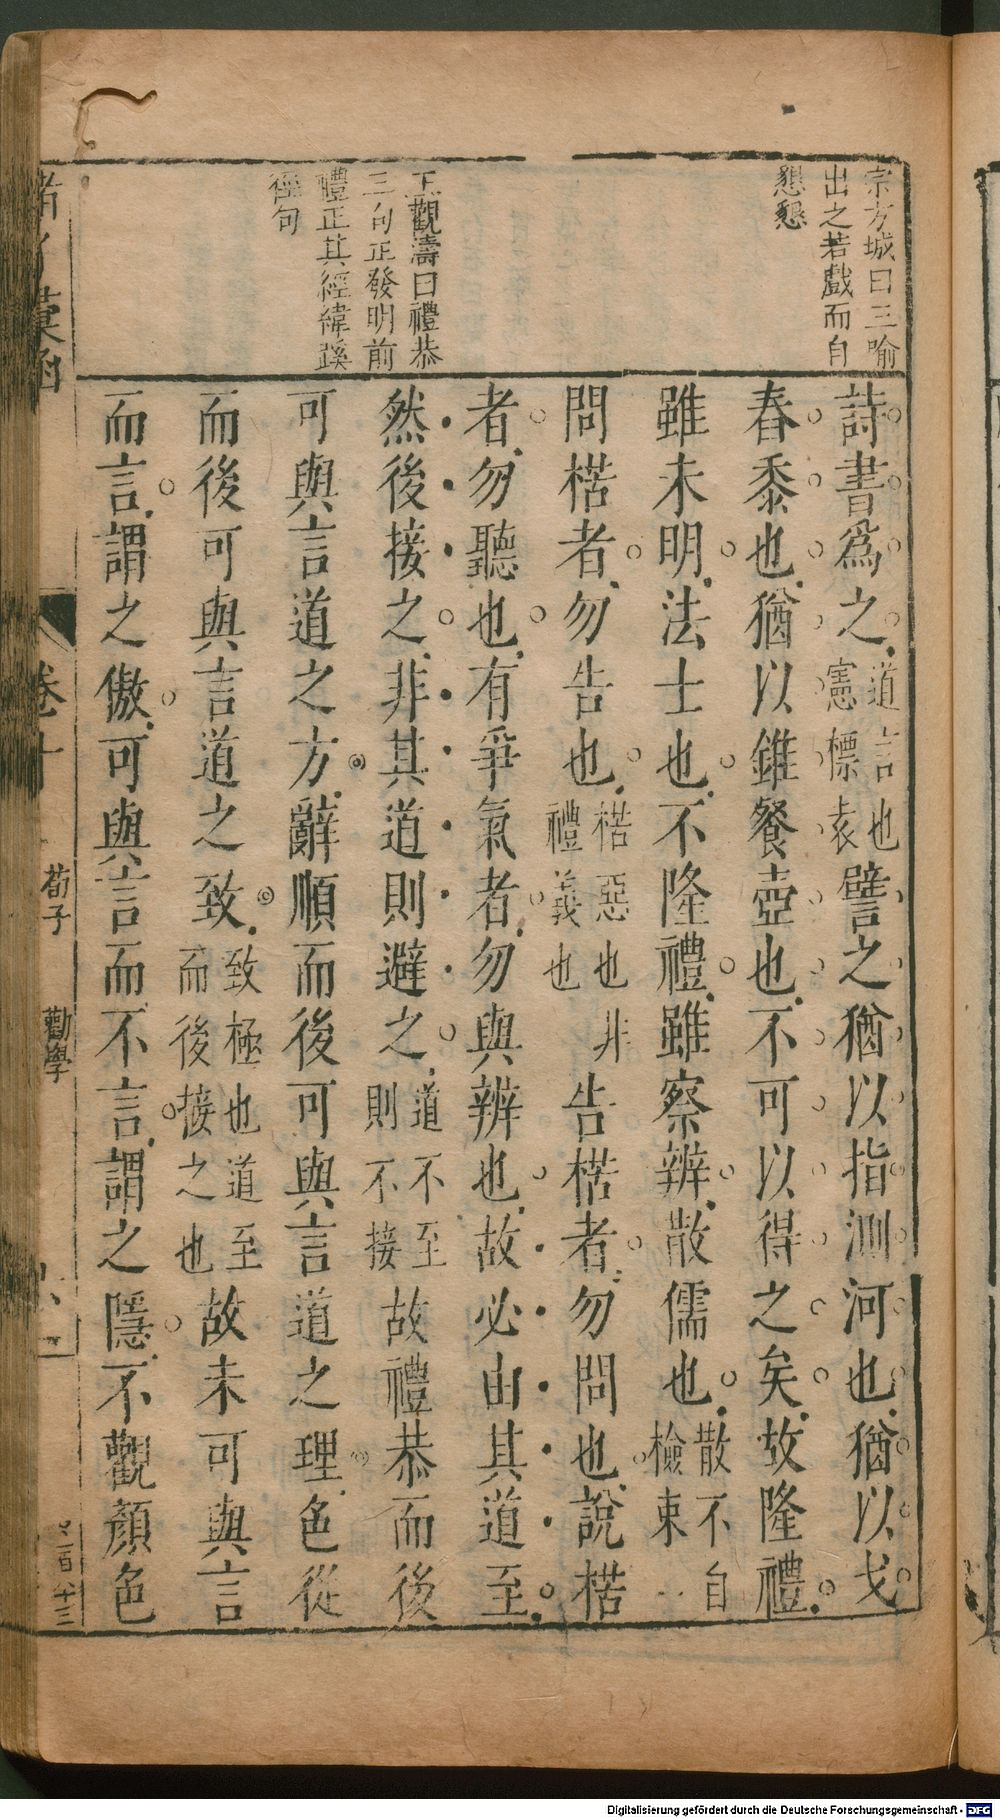 宗方城曰三喻
出之若戲而自
懇懇
王觀濤曰禮恭
三句正發明前
禮正其經緯蹊
徑句
詩書爲之道言也憲標表譬之猶以指測河也猶以戈
舂黍也猶以錐餐壺也不可以得之矣故隆禮
雖未明法士也不隆禮雖察辨散儒也散不自檢束
問楛者勿告也楛惡也非禮義也告楛者勿問也說楛
者勿聽也有爭氣者勿與辨也故必由其道至
然後接之非其道則避之道不至則不接故禮恭而後
可與言道之方辭順而後可與言道之理色從
而後可與言道之致致極也道至而後接之也故未可與言
而言謂之傲可與言而不言謂之隱不觀顏色
卷十
荀子
勸學
Digitalisierung gefördert durch die Deutsche Forschungsgemeinschaft - DFG